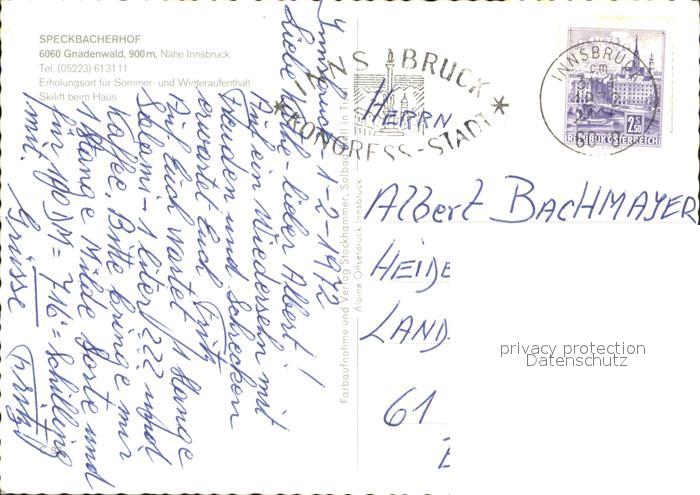 SPECKBACHERHOF
6060 Gnadenwald, 900 m, Nähe Innsbruck
Tel. (05223) 613111
Erholungsort für Sommer- und Winteraufenthalt
Skilift beim Haus
1-2-1972
Liebe lieber Albert!
Auf ein Wiedersehn mit
Freuden und Schrecken
erwartet Euch Fritz
Auf Euch wartet 1 Stange
Salami - 1 Liter ??? und
Kaffee. Bitte bringe mir
1 Stange Milde Sorte und
für 100 DM = 716 = Schilling
mit.
Grüsse Fritz
Farbaufnahme und Verlag Stockhammer, Solbad Hall in Tirol
Alpine Offsetdruck Innsbruck
INNSBRUCK
KONGRESS-STADT
INNSBRUCK
2 S 50
REPUBLIK ÖSTERREICH
HERRN
Albert BACHMAYER
HEIDE
LAND
61
privacy protection
Datenschutz